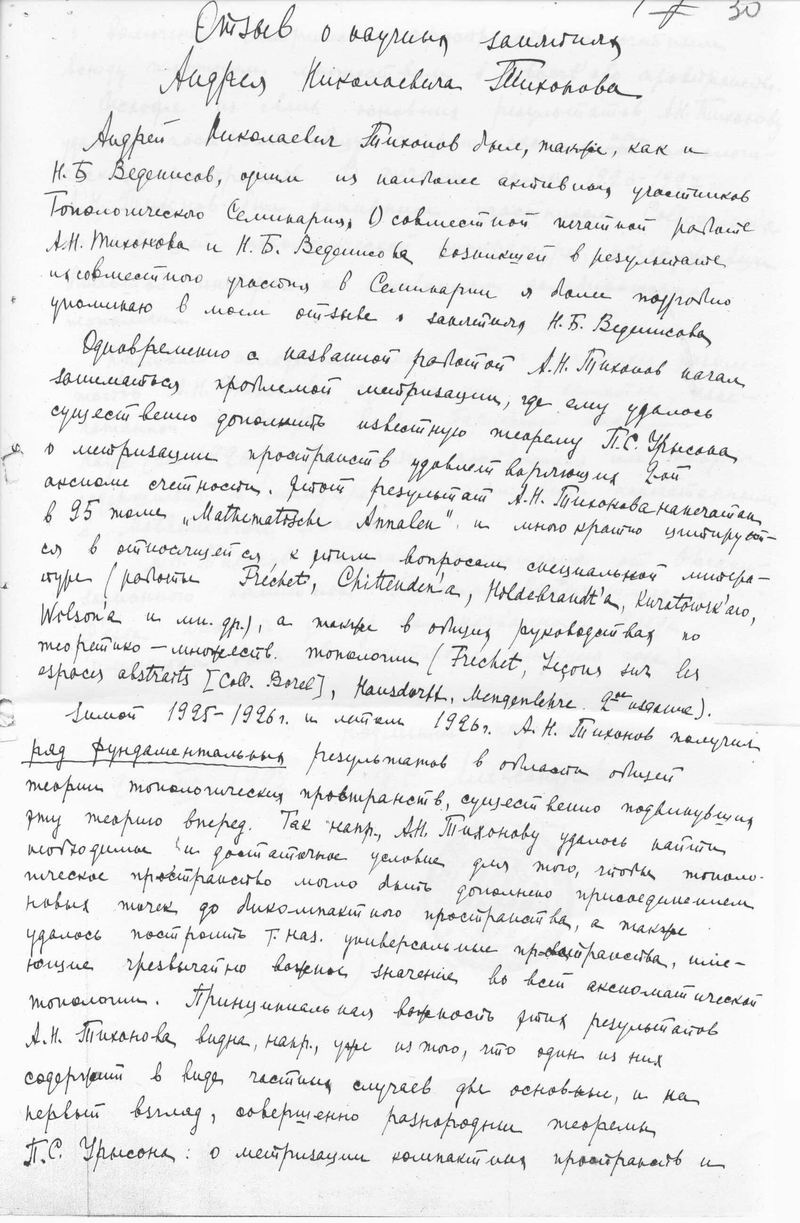 30
Отзыв о научных занятиях
Андрея Николаевича Тихонова
Андрей Николаевич Тихонов был, также, как и
Н.Б Веденисов, одним из наиболее активных участников
Топологического Семинария. О совместной печатной работе
А.Н. Тихонова и Н.Б. Веденисова возникшей в результате
их совместного участия в Семинарии я более подробно
упоминаю в моем отзыве о занятиях Н.Б. Веденисова
Одновременно с названной работой А.Н. Тихонов начал
заниматься проблемой метризации, где ему удалось
существенно дополнить известную теорему П.С. Урысона
о метризации пространств удовлетворяющих 2-ой
аксиоме счетности. Этот результат А.Н. Тихонова напечатан
в 95 томе „Mathematische Annalen“ и многократно цитирует-
ся в относящейся к этим вопросам специальной литера-
туре (работы Fréchet, Chittenden'a, Holdebrandt'a, Kuratowsk'aго,
Wolson'a и мн. др.), а также в общих руководствах по
теоретико–множеств. топологии (Fréchet, Leçons sur les
espaces abstraits [Coll. Borel], Hausdorff, Mengenlehre. 2ое издание).
Зимой 1925–1926г. и летом 1926г. А.Н. Тихонов получил
ряд фундаментальных результатов в области общей
теории топологических пространств, существенно подвинувших
эту теорию вперед. Так напр., А.Н. Тихонову удалось найти
необходимое и достаточное условие для того, чтобы тополо-
гическое пространство могло быть дополнено присоединением
новых точек до бикомпактного пространства, а также
удалось построить т. наз. универсальные пространства, име-
ющие чрезвычайно важное значение во всей аксиоматической
топологии. Принципиальная важность этих результатов
А.Н. Тихонова видна, напр., уже из того, что один из них
содержит в виде частных случаев две основные, и на
первый взгляд, совершенно разнородные теоремы
П.С. Урысона: о метризации компактных пространств и